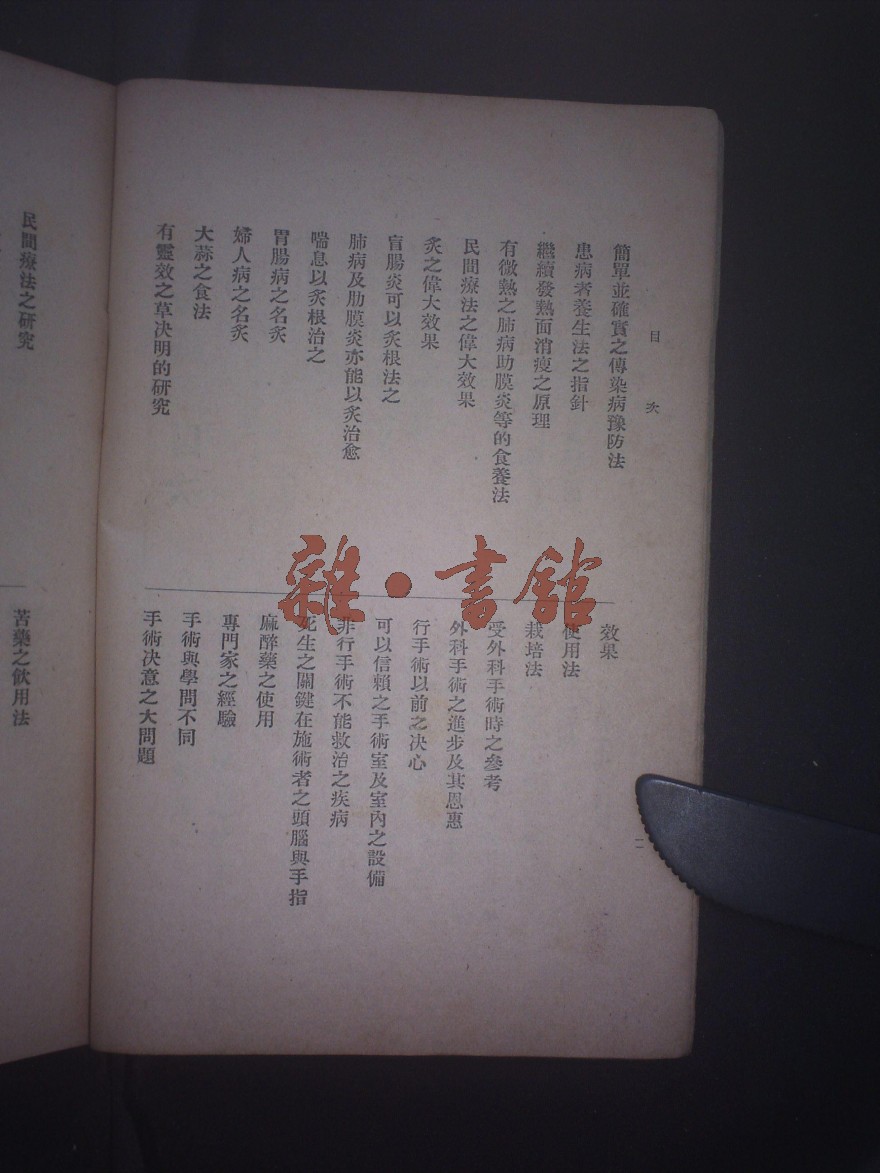 目次
簡單並確實之傳染病豫防法
患病者養生法之指針
繼續發熱面消瘦之原理
有微熱之肺病助膜炎等的食養法
民間療法之偉大效果
炙之偉大效果
盲腸炎可以炙根法之
肺病及肋膜炎亦能以炙治愈
喘息以炙根治之
胃腸病之名炙
婦人病之名炙
大蒜之食法
有靈效之草決明的研究
效果
使用法
栽培法
受外科手術時之參考
外科手術之進步及其恩惠
行手術以前之决心
可以信賴之手術室及室內之設備
非行手術不能救治之疾病
死生之關鍵在施術者之頭腦與手指
麻醉藥之使用
專門家之經驗
手術與學問不同
手術决意之大問題
二
民間療法之研究
苦藥之飲用法
雜·書館